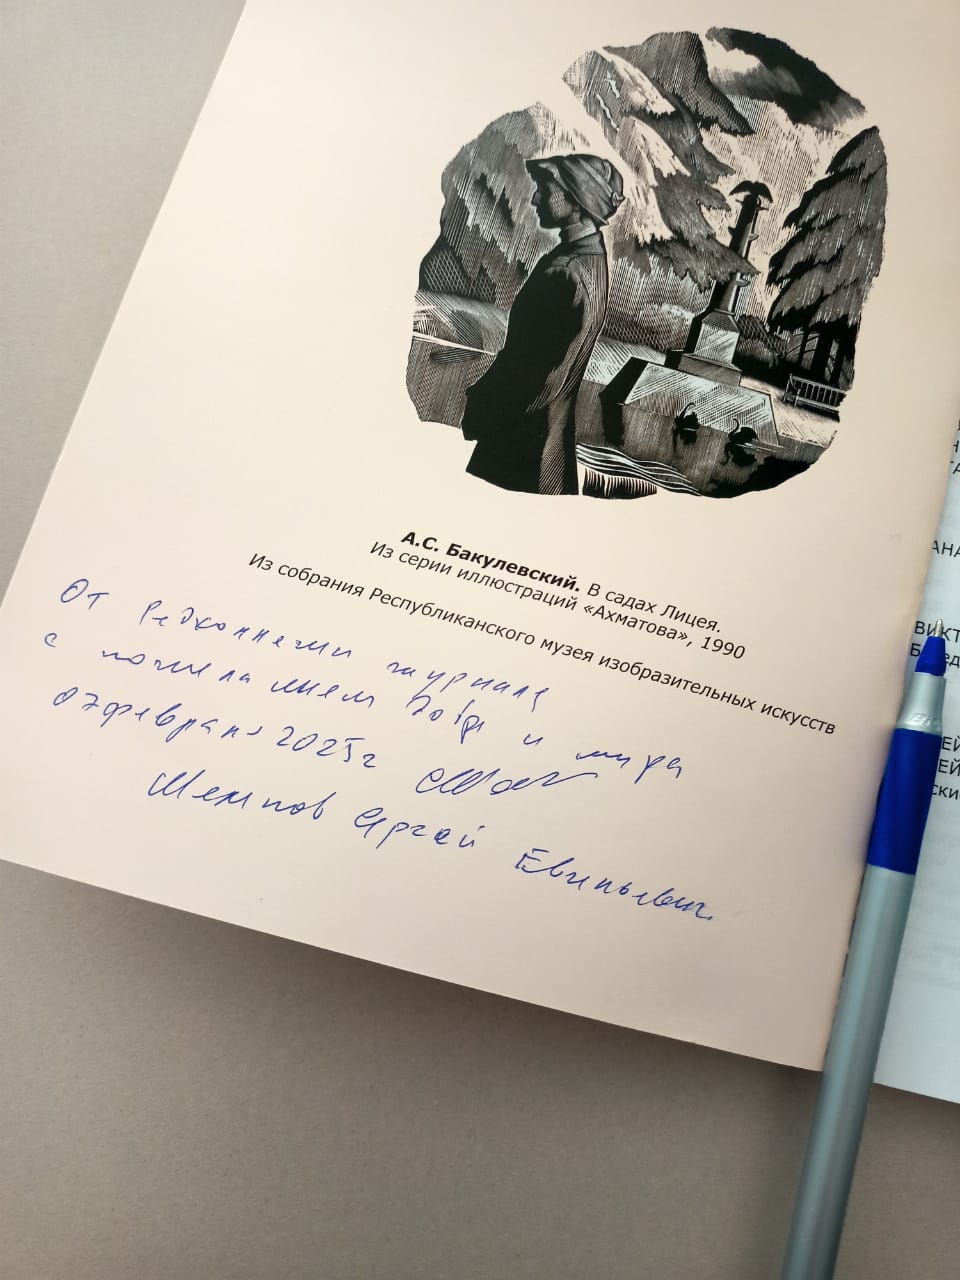 А.С. Бакулевский. В садах Лицея.
Из серии иллюстраций «Ахматова», 1990
Из собрания Республиканского музея изобразительных искусств
От редколлегии журнала
с пожеланием добра и мира
07 февраля 2025г
Сергей Евгеньевич.